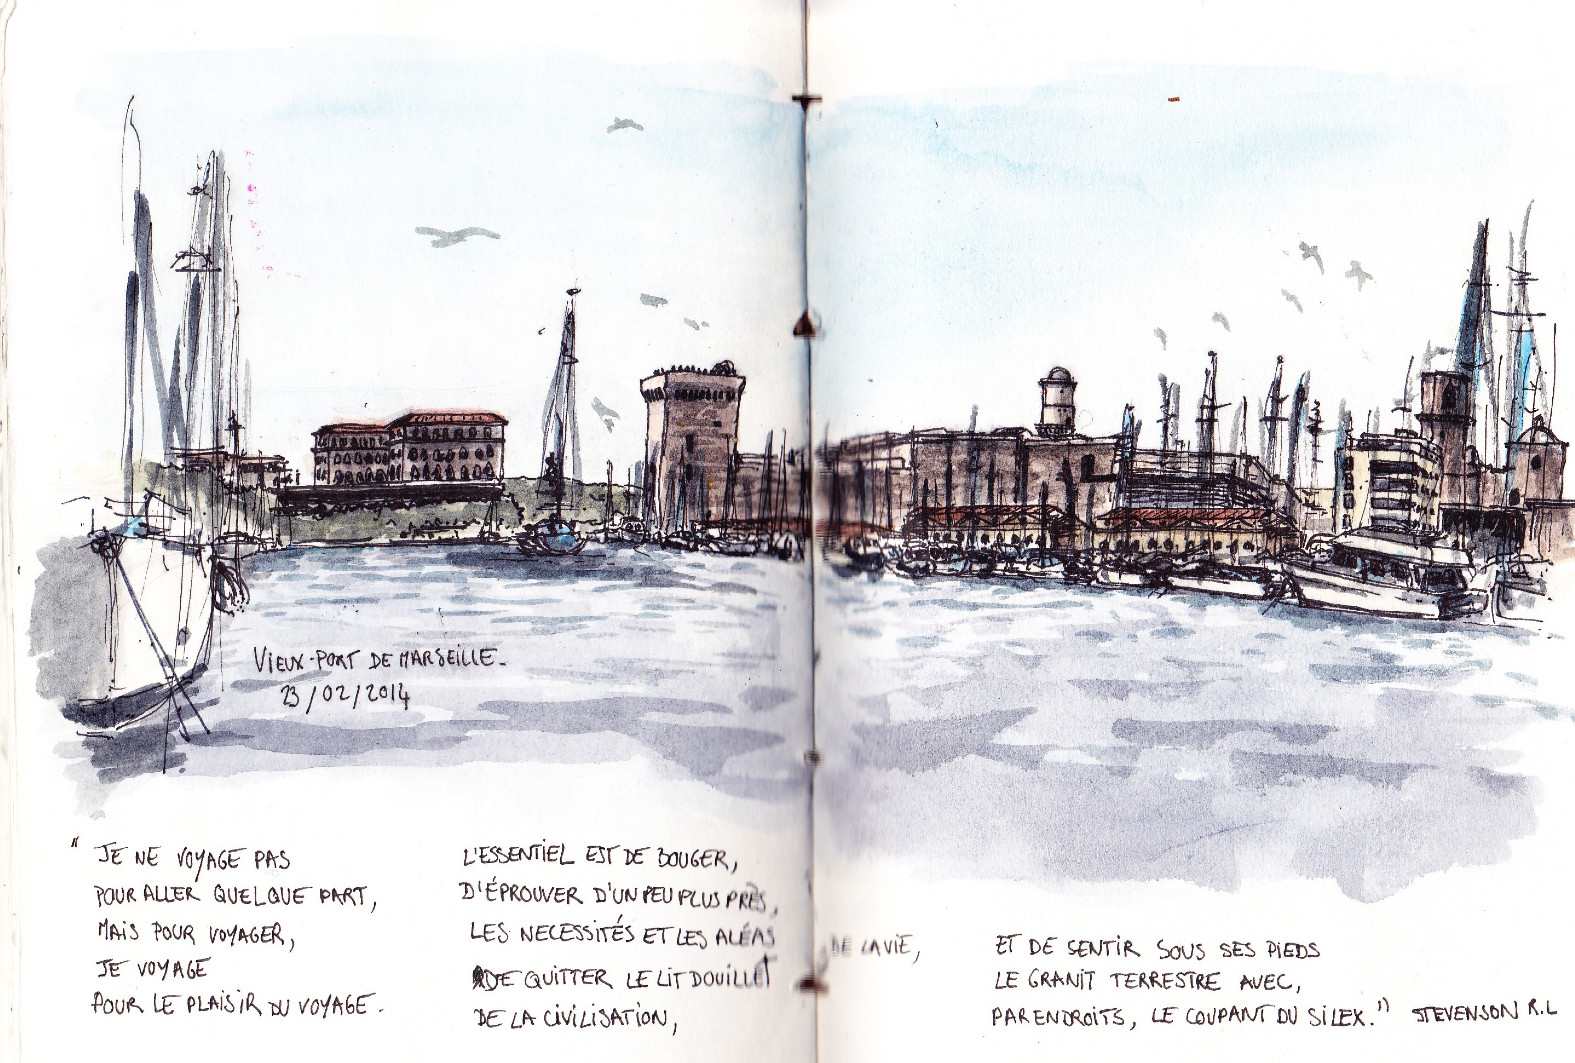 VIEUX-PORT DE MARSEILLE.
23/02/2014
"JE NE VOYAGE PAS
POUR ALLER QUELQUE PART,
MAIS POUR VOYAGER,
JE VOYAGE
POUR LE PLAISIR DU VOYAGE.
L'ESSENTIEL EST DE BOUGER,
D'ÉPROUVER D'UN PEU PLUS PRÈS,
LES NECESSITÉS ET LES ALÉAS DE LA VIE,
DE QUITTER LE LIT DOUILLET
DE LA CIVILISATION,
ET DE SENTIR SOUS SES PIEDS
LE GRANIT TERRESTRE AVEC,
PAR ENDROITS, LE COUPANT DU SILEX." STEVENSON R.L